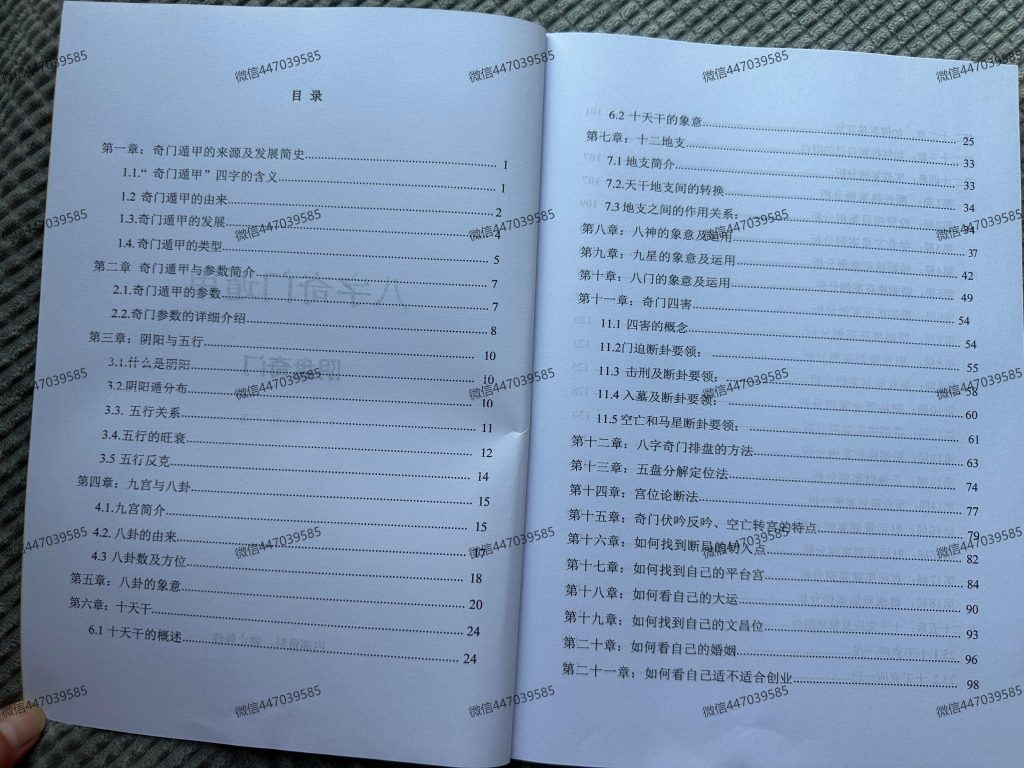 目 录
第一章：奇门遁甲的来源及发展简史 1
1.1.“ 奇门遁甲” 四字的含义 1
1.2 奇门遁甲的由来 2
1.3.奇门遁甲的发展 4
1.4. 奇门遁甲的类型 5
第二章 奇门遁甲与参数简介 7
2.1.奇门遁甲的参数 7
2.2.奇门参数的详细介绍 8
第三章：阴阳与五行 10
3.1.什么是阴阳 10
3.2.阴阳遁分布 10
3.3. 五行关系 11
3.4.五行的旺衰 12
3.5 五行反克 14
第四章：九宫与八卦 15
4.1.九宫简介 15
4.2. 八卦的由来 17
4.3 八卦数及方位 18
第五章：八卦的象意 20
第六章：十天干 24
6.1 十天干的概述 24
6.2 十天干的象意 25
第七章：十二地支 33
7.1 地支简介 33
7.2.天干地支间的转换 34
7.3 地支之间的作用关系： 34
第八章：八神的象意及运用 37
第九章：九星的象意及运用 42
第十章：八门的象意及运用 49
第十一章：奇门四害 54
11.1 四害的概念 54
11.2门迫断卦要领： 55
11.3 击刑及断卦要领： 58
11.4 入墓及断卦要领： 60
11.5 空亡和马星断卦要领： 61
第十二章：八字奇门排盘的方法 63
第十三章：五盘分解定位法 74
第十四章：宫位论断法 77
第十五章：奇门伏吟反吟、空亡转宫的特点 79
第十六章：如何找到断局的切入点 82
第十七章：如何找到自己的平台宫 84
第十八章：如何看自己的大运 90
第十九章：如何找到自己的文昌位 93
第二十章：如何看自己的婚姻 96
第二十一章：如何看自己适不适合创业 98
微信447039585